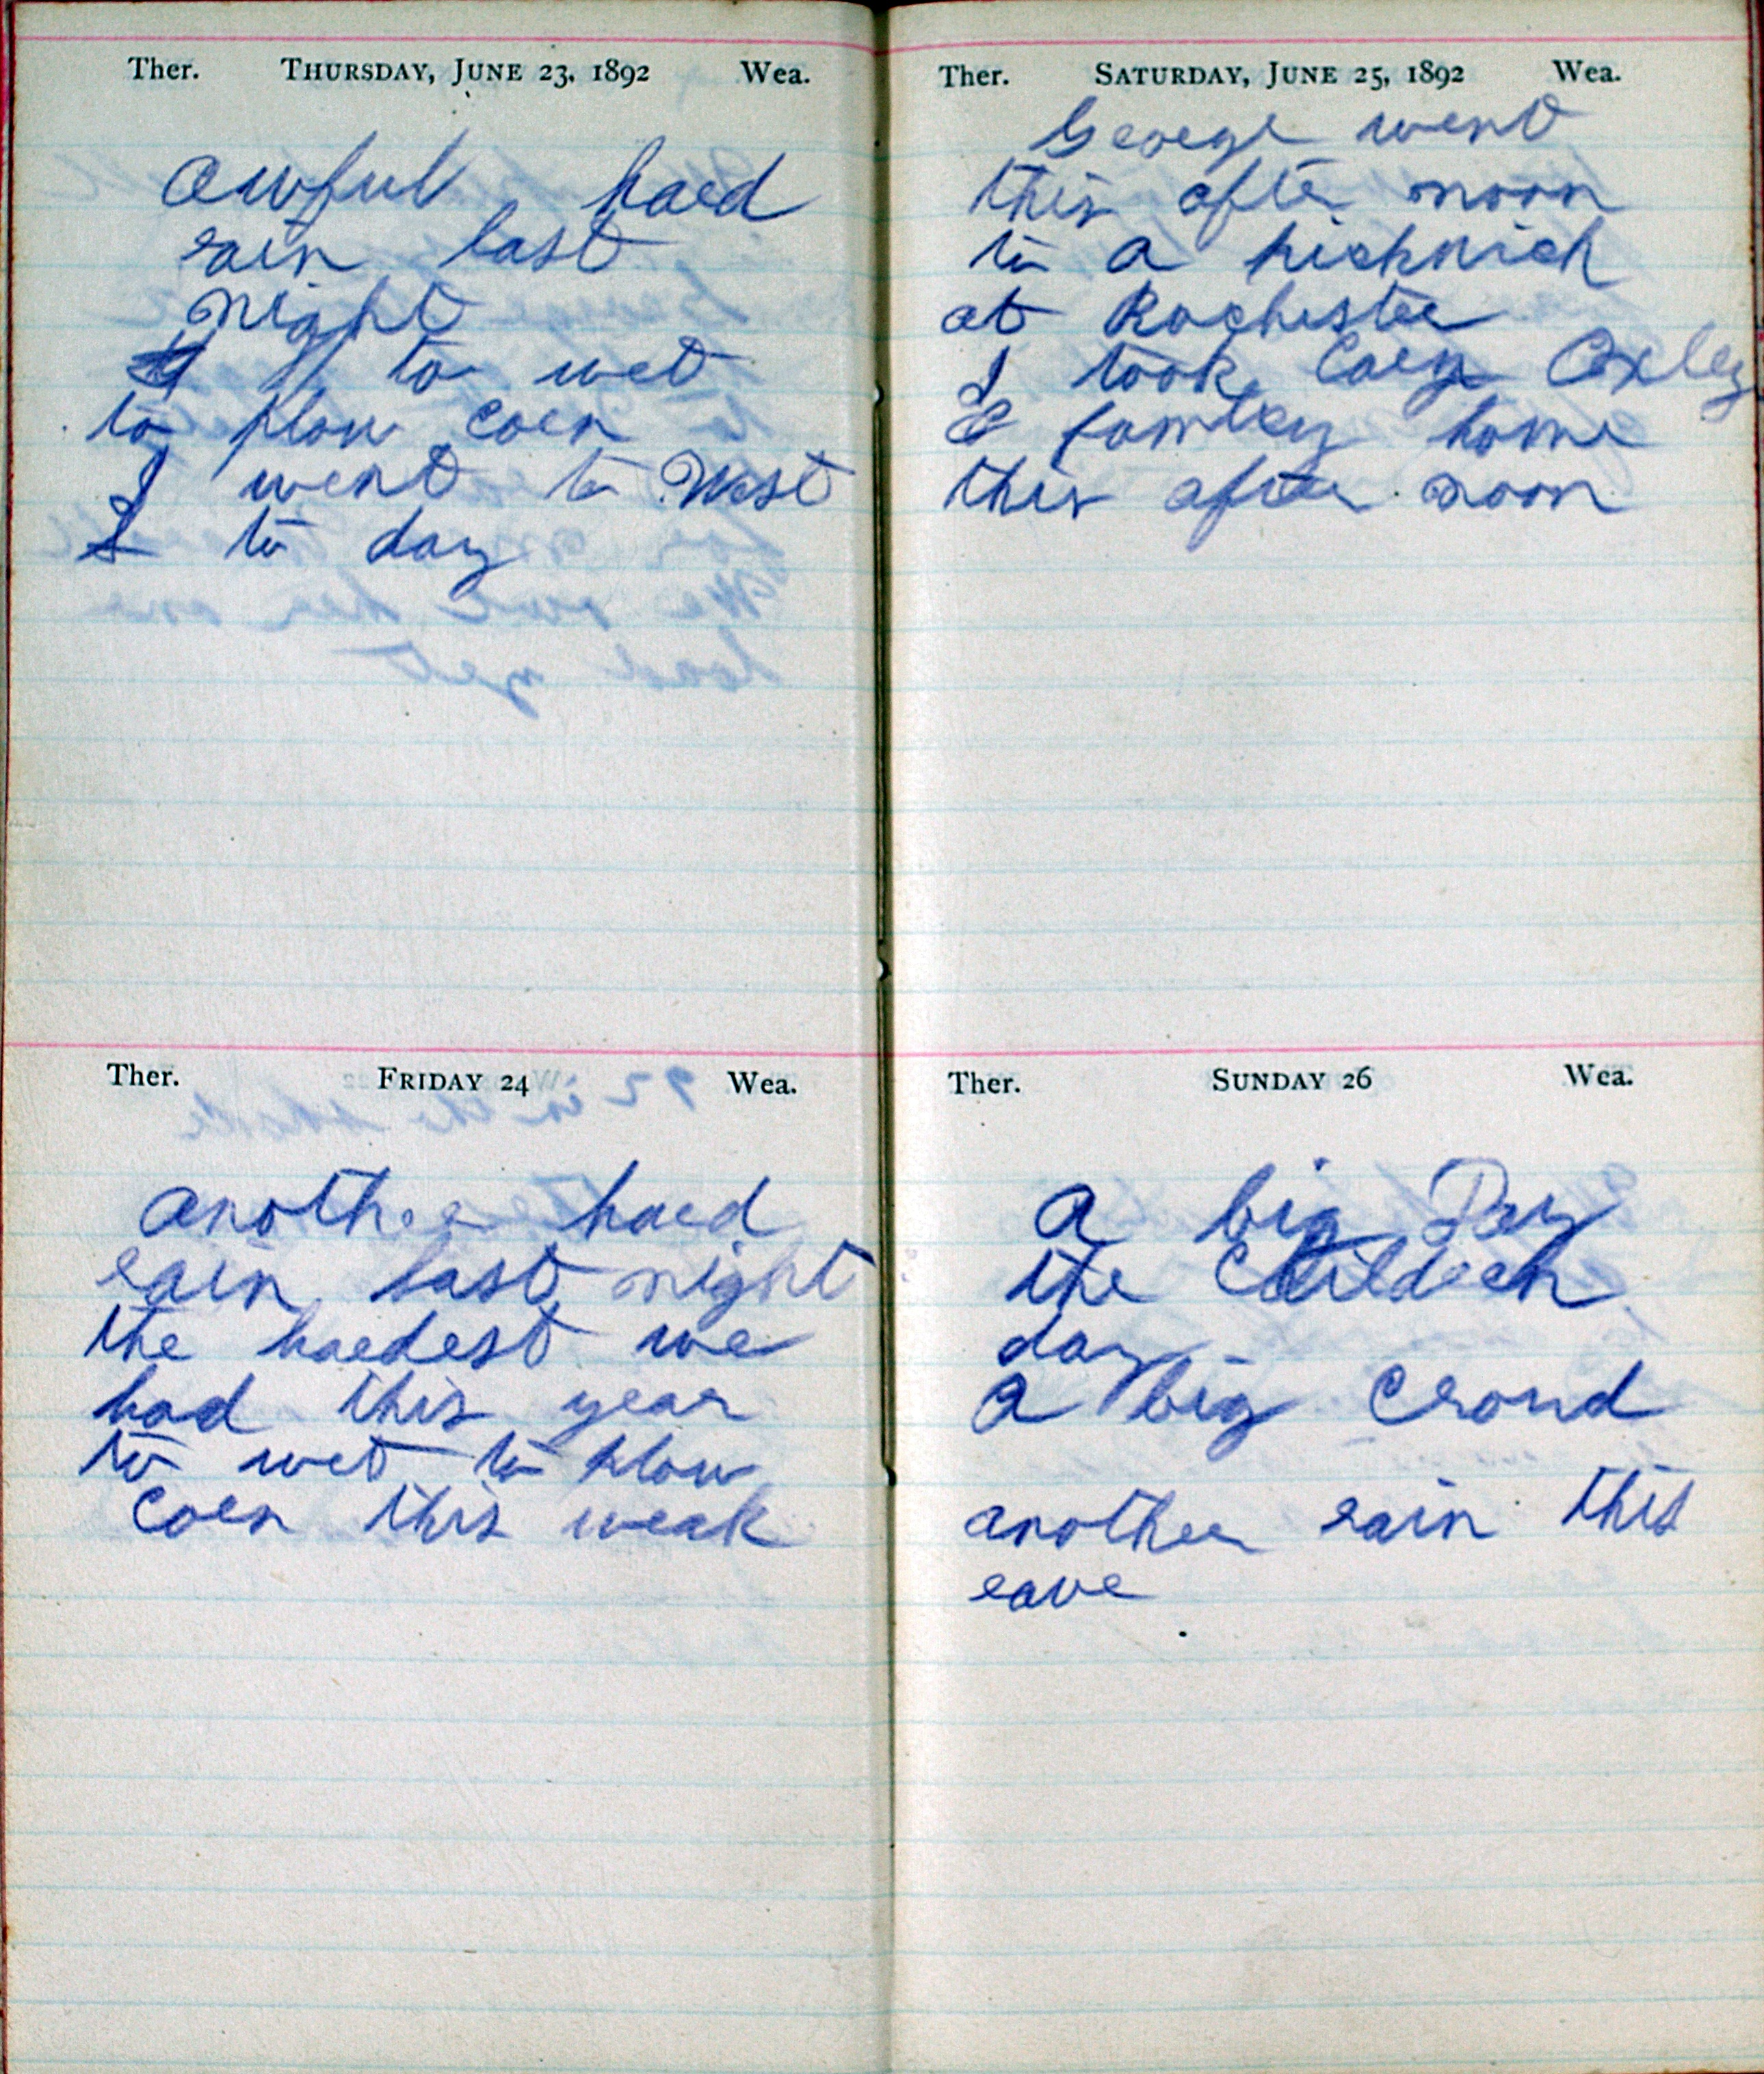 Ther. THURSDAY, JUNE 23, 1892 Wea.
awful hard
rain last
night
to wet
to plow corn
I went to West
L to day
Ther. FRIDAY 24 Wea.
another hard
rain last night
the hardest we
had this year
to wet to plow
corn this weak
Ther. SATURDAY, JUNE 25, 1892 Wea.
George went
this after noon
to a picknick
at Rochester
I took Cary Oxley
& famley home
this after noon
Ther. SUNDAY 26 Wea.
A big Day
the Children
day
A big Crowd
another rain this
eave